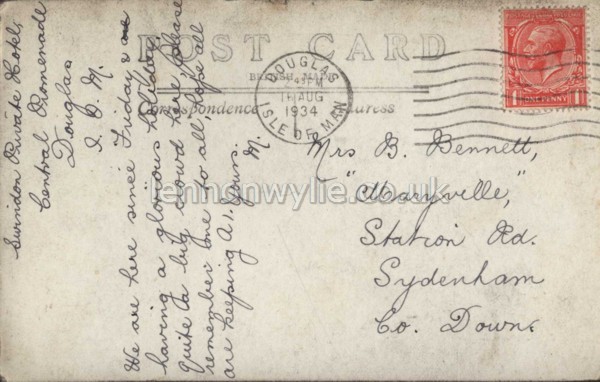 POST CARD
BRITISH MADE
Correspondence
Address
DOUGLAS
16 AUG
1934
ISLE OF MAN
ONE PENNY
Swindon Private Hotel,
Central Promenade
Douglas
I. O. M.
We are here since Friday & are
having a glorious holiday
Quite a big crowd here, please
remember me to all, hope all
are keeping A1, Yours. M.
Mrs B. Bennett,
"Maryville,"
Station Rd.
Sydenham
Co. Down.
lennonwylie.co.uk